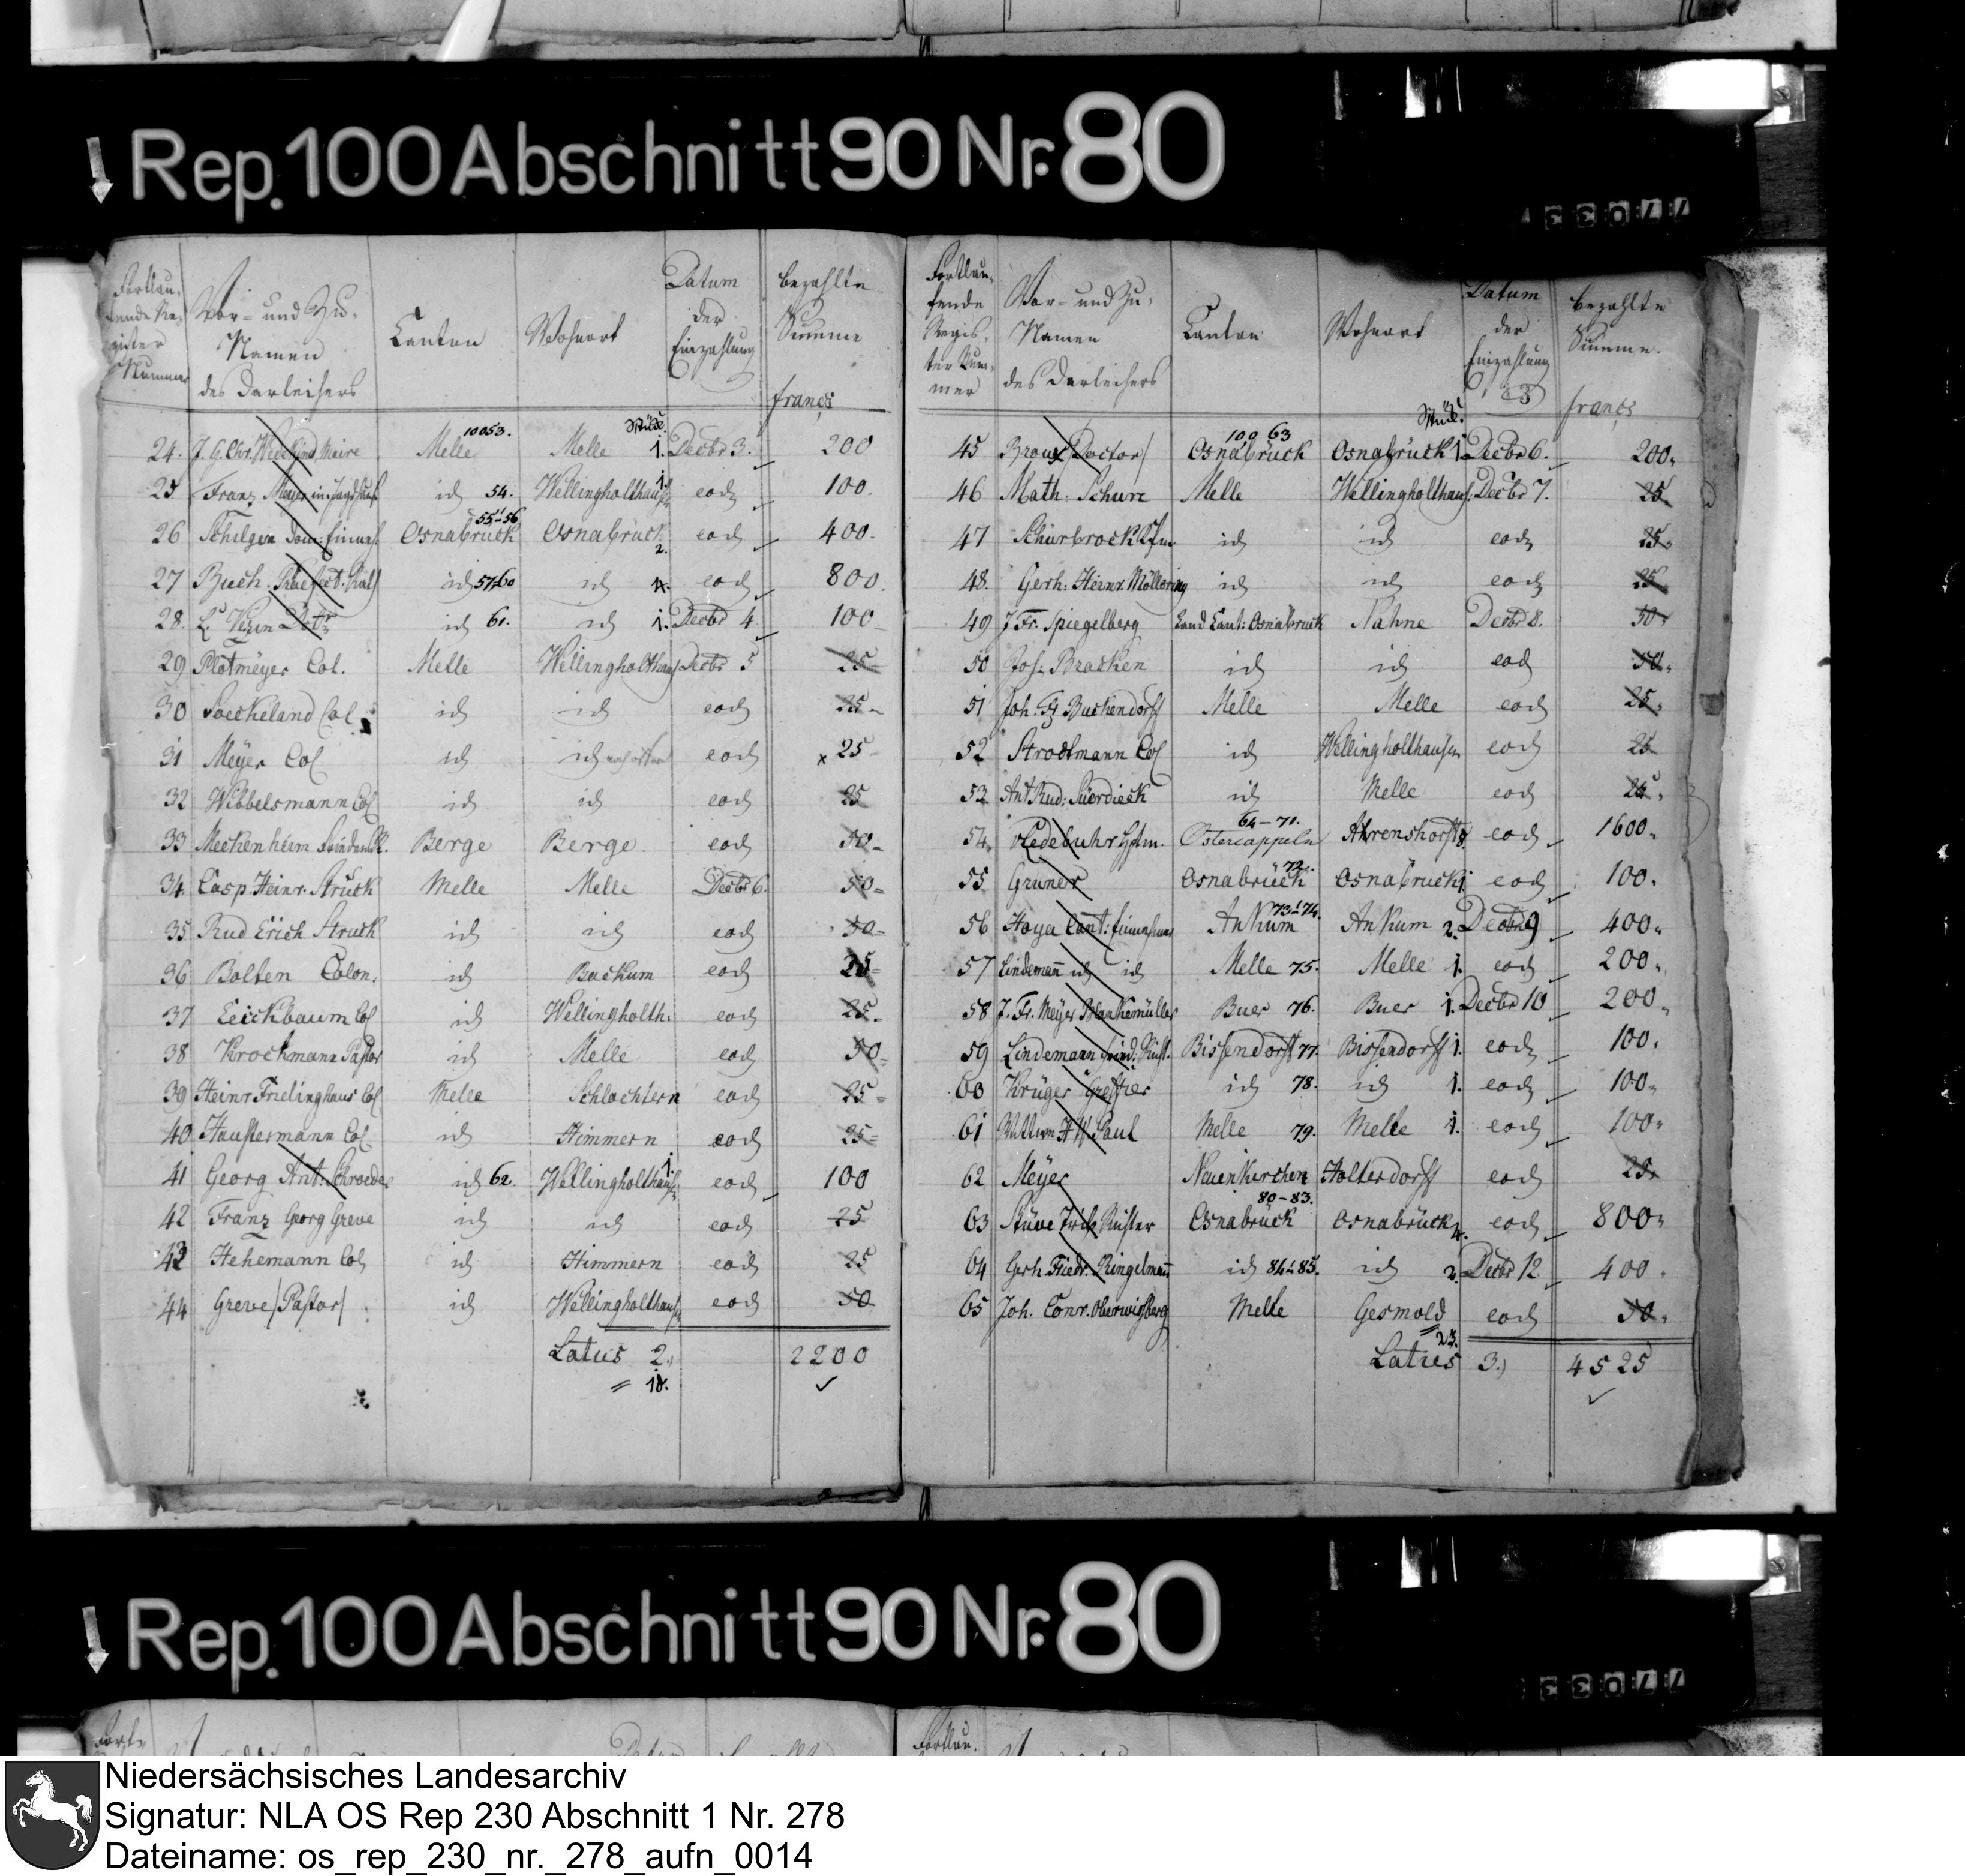 Rep. 100 Abschnitt 90 Nr. 80
77033
Fortlau-
fende Re-
gister
Nummer
Vor- und Zu-
Namen
des Darleihers
Canton
Wohnort
Datum
der
Einzahlung
bezahlte
Summe
francs
Stück.
24. J. G. Chr. Wedekind Maire Melle 100 53. Melle 1. Decbr 3. 200
25 Franz Meyer id 54. Wellingholthaus. 1. eod 100.
26 Schilgen Dom: Osnabruck 55 56 Osnabruck 2. eod 400.
27 Buch. Praefect. id 57-60 id 4. eod 800.
28. L. Vezin id 61. id 1. Decbr 4. 100
29 Plotmeyer Col. Melle Wellingholthaus Decbr 5 25
30 Soeckeland Col id id eod 25
31 Meyer Col id id eod x 25
32 Wibbelsmann Col id id eod 25
33 Meckenheim Berge Berge eod 50
34 Casp Heinr. Struck Melle Melle Decbr 6. 50
35 Rud Erich Struck id id eod 50
36 Bolten Colon. id Backum eod 25
37 Eeickbaum Col id Wellingholth: eod 25.
38 Krochmann Pastor id Melle eod 50
39 Heinr Frielinghaus Col Melle Schlochtern eod 25
40 Haustermann Col id Himmern eod 25
41 Georg Ant: Schroeder id 62. Wellingholthaus. 1. eod 100
42 Franz Georg Greve id id eod 25
43 Hehemann Col id Himmern eod 25
44 Greve /Pastor/ id Wellingholthaus. eod 50
Latus 2.) 2200
= 10.
Fortlau-
fende
Regis-
ter Num-
mer
Vor- und Zu-
Namen
des Darleihers
Canton
Wohnort
Datum
der
Einzahlung
3
bezahlte
Summe.
francs
Stück.
45 /Doctor/ Osnabrück 100 63 Osnabrück 1. Decbr 6. 200.
46 Math. Schure Melle Wellingholthaus. Decbr 7. 25.
47 Schürbrock id id eod 25.
48. Gerh: Heinr. Möllering id id eod 25
49 J Fr. Spiegelberg Land Cant: Osnabruck Nahne Decbr 8. 50
50 Jos. Bracken id id eod 50.
51 Joh. Fr Buckendorff Melle Melle eod 25.
52 Strodtmann Col id Wellingholthausen eod 25
53 Ant Rud: Suerdieck id Melle eod 25.
54. Vledebuhr Ostercappeln 64-71. Ahrenshorst 8. eod 1600.
55 Gruner Osnabrück 72. Osnabruck 1. eod 100.
56 Hoya Cant: Ankum 73 74. Ankum 2. Decbr 9 400.
57 Lindemann id id Melle 75. Melle 1. eod 200.
58 J. Fr. Meyer Blankemüller Buer 76. Buer 1. Decbr 10 200.
59 Lindemann Bissendorff 77. Bissendorff 1. eod 100.
60 Krüger Greffier id 78. id 1. eod 100.
61 Paul Melle 79. Melle 1. eod 100.
62 Meyer Neuenkirchen Holterdorff eod 25.
63 Stüve Osnabrück 80-83. Osnabrück 4. eod 800.
64 Gerh. Friedr. Ringelmann id 84 85. id 2. Decbr 12 400.
65 Joh. Conr. Melle Gesmold eod 50.
23.
Latus 3.) 4525
Rep. 100 Abschnitt 90 Nr. 80
77033
Niedersächsisches Landesarchiv
Signatur: NLA OS Rep 230 Abschnitt 1 Nr. 278
Dateiname: os_rep_230_nr._278_aufn_0014